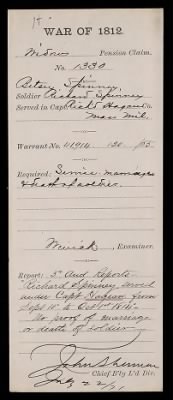 WAR OF 1812.
Widow Pension Claim.
No. 1330
Betsey Spinney
Soldier Richard Spinney
Served in Capt Rich'd Co.
Mass Mil.
Warrant No. 41914 120 55
Required: Service marriage
& death of soldier.
Examiner.
Report: 3d Aud. Reports
"Richard Spinney served
under Capt from
Sept 11 to Oct 1814"
No proof of marriage
or death of soldier
John Sherman
Chief B'ty L'd Div.
July 22 /71